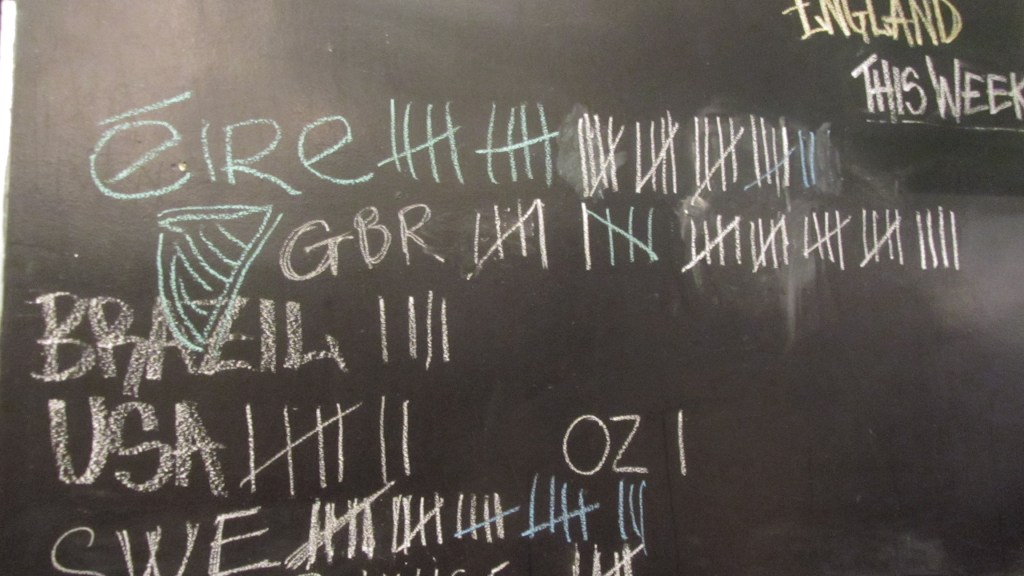 ENGLAND
THIS WEEK
éIRE
GBR
BRAZIL
USA
OZ
SWE